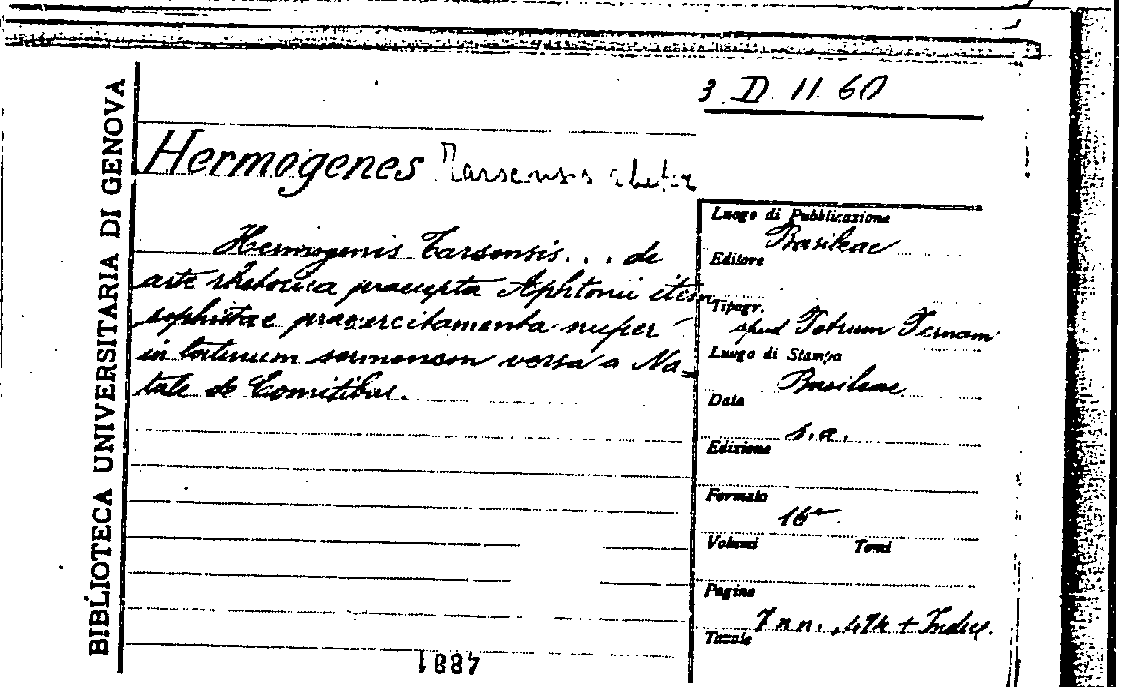 3 D 11 60
BIBLIOTECA UNIVERSITARIA DI GENOVA
Hermogenes Tarsensis rhetor
Hermogenis Tarsensis... de
arte rhetorica praecepta Aphtonii item
sophistae praeexercitamenta nuper
in latinum sermonem versa a Na-
tale de Comitibus.
Luogo di Pubblicazione
Basileae
Editore
Tipogr.
apud Petrum Pernam
Luogo di Stampa
Basileae
Data
s.a.
Edizione
Formato
16°
Volumi Tomi
Pagine
7 nn., + Index.
Tavole
4881